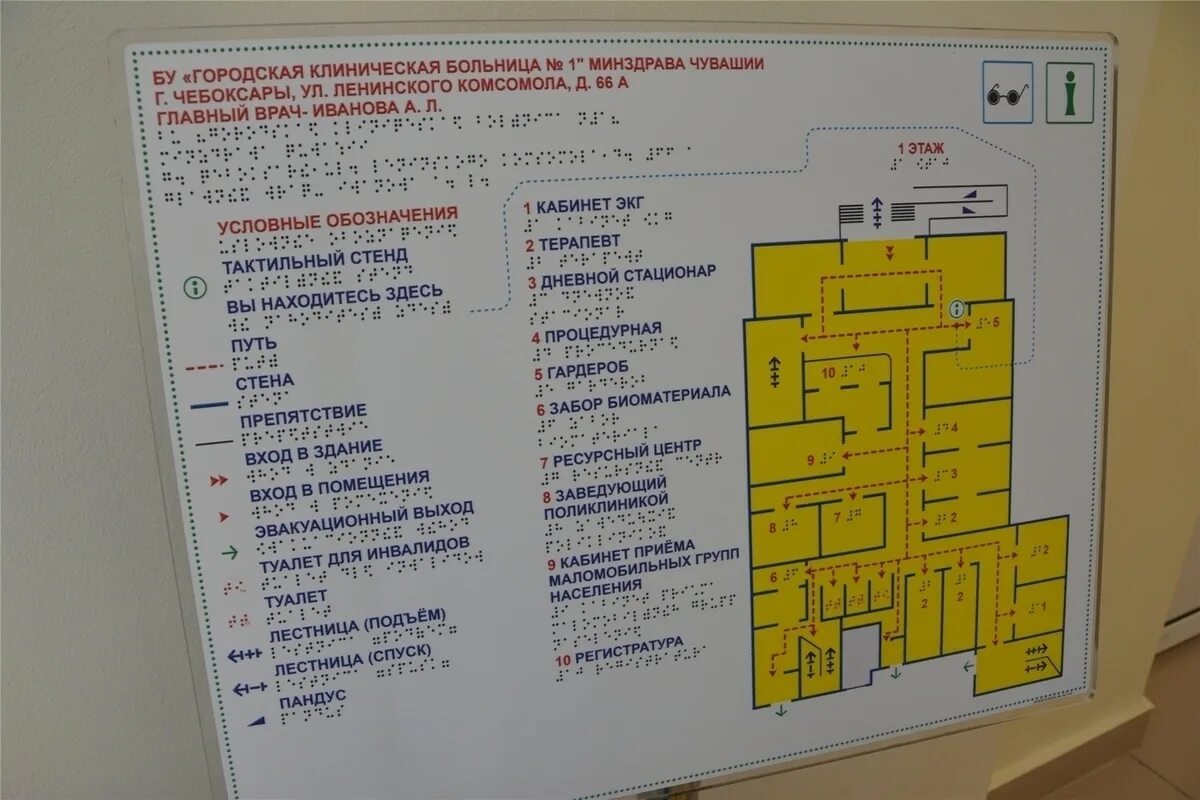 БУ «ГОРОДСКАЯ КЛИНИЧЕСКАЯ БОЛЬНИЦА № 1" МИНЗДРАВА ЧУВАШИИ
Г. ЧЕБОКСАРЫ, УЛ. ЛЕНИНСКОГО КОМСОМОЛА, Д. 66 А
ГЛАВНЫЙ ВРАЧ- ИВАНОВА А. Л.
УСЛОВНЫЕ ОБОЗНАЧЕНИЯ
ТАКТИЛЬНЫЙ СТЕНД
ВЫ НАХОДИТЕСЬ ЗДЕСЬ
ПУТЬ
СТЕНА
ПРЕПЯТСТВИЕ
ВХОД В ЗДАНИЕ
ВХОД В ПОМЕЩЕНИЯ
ЭВАКУАЦИОННЫЙ ВЫХОД
ТУАЛЕТ ДЛЯ ИНВАЛИДОВ
ТУАЛЕТ
ЛЕСТНИЦА (ПОДЪЁМ)
ЛЕСТНИЦА (СПУСК)
ПАНДУС
1 КАБИНЕТ ЭКГ
2 ТЕРАПЕВТ
3 ДНЕВНОЙ СТАЦИОНАР
4 ПРОЦЕДУРНАЯ
5 ГАРДЕРОБ
6 ЗАБОР БИОМАТЕРИАЛА
7 РЕСУРСНЫЙ ЦЕНТР
8 ЗАВЕДУЮЩИЙ
ПОЛИКЛИНИКОЙ
9 КАБИНЕТ ПРИЁМА
МАЛОМОБИЛЬНЫХ ГРУПП
НАСЕЛЕНИЯ
10 РЕГИСТРАТУРА
1 ЭТАЖ
5
10
4
9
3
8
7
2
6
2
2
2
1